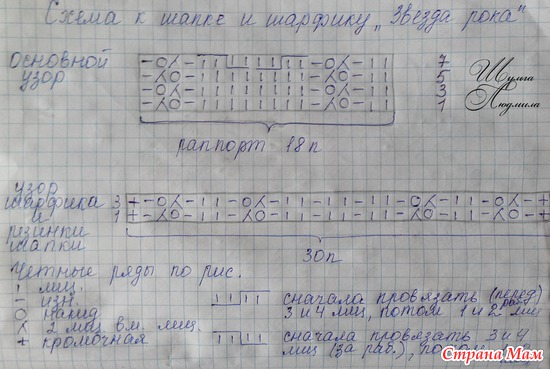 Схема к шапке и шарфику „Звезда рока"
основной
узор
- O λ - I I I I I I I I - O λ - I I 7
- λ O - I I I I I I I I - λ O - I I 5
- O λ - I I I I I I I I - O λ - I I 3
- λ O - I I I I I I I I - λ O - I I 1
Шульга
Людмила
раппорт 18п
узор
шарфика
и
резинки
шапки
3 + - O λ - I I - O λ - I I - I I - I I - O λ - I I - O λ - +
1 + - λ O - I I - λ O - I I - I I - I I - λ O - I I - λ O - +
30п
Четные ряды по рис.
I лиц.
- изн.
O накид
λ 2 лиц вм. лиц.
+ кромочная
сначала провязать (перед раб)
3 и 4 лиц, потом 1 и 2 лиц
сначала провязать 3 и 4
лиц (за раб.),
Страна Мам